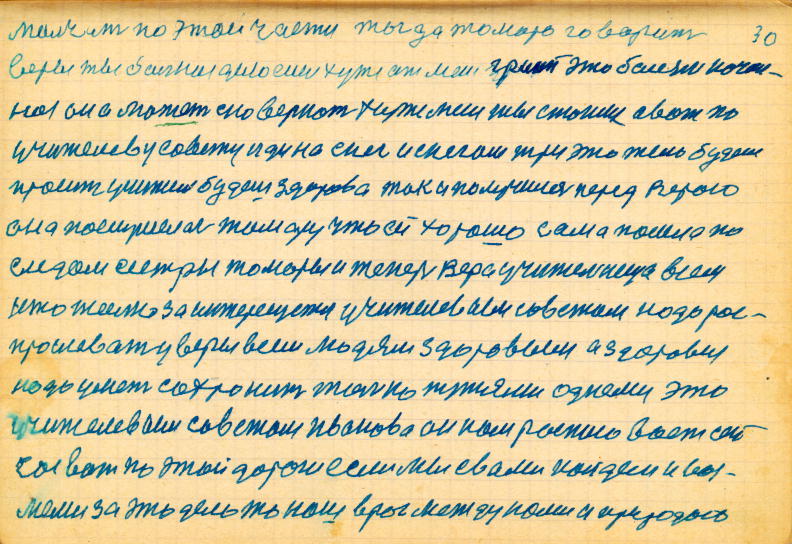 молчит по этой части тогда томара говорит 30
веры ты болная дело если хуже от меня грипт это болезн кочи-
ная она может сковернот хуже меня ты стоиш а вот по
учителеву совету иди на снег и снегом три это тело будеш
просит учителя будеш здорова так и получился перед верою
она послушелас томару што ей хорошо сама пошла по
следам сестры томары и тепер Вера учителница всем
што толко заинтересуется учителевым советом надо рос-
прословат у веры всем людям здоровым а здоровя
надо умет сохронит толко путями одними это
учителевым советом иванова он нам росписовает сей
час вот по этой дороги если мы с вами пойдем и воз-
мемся за это дело то наш враг между нами и природою